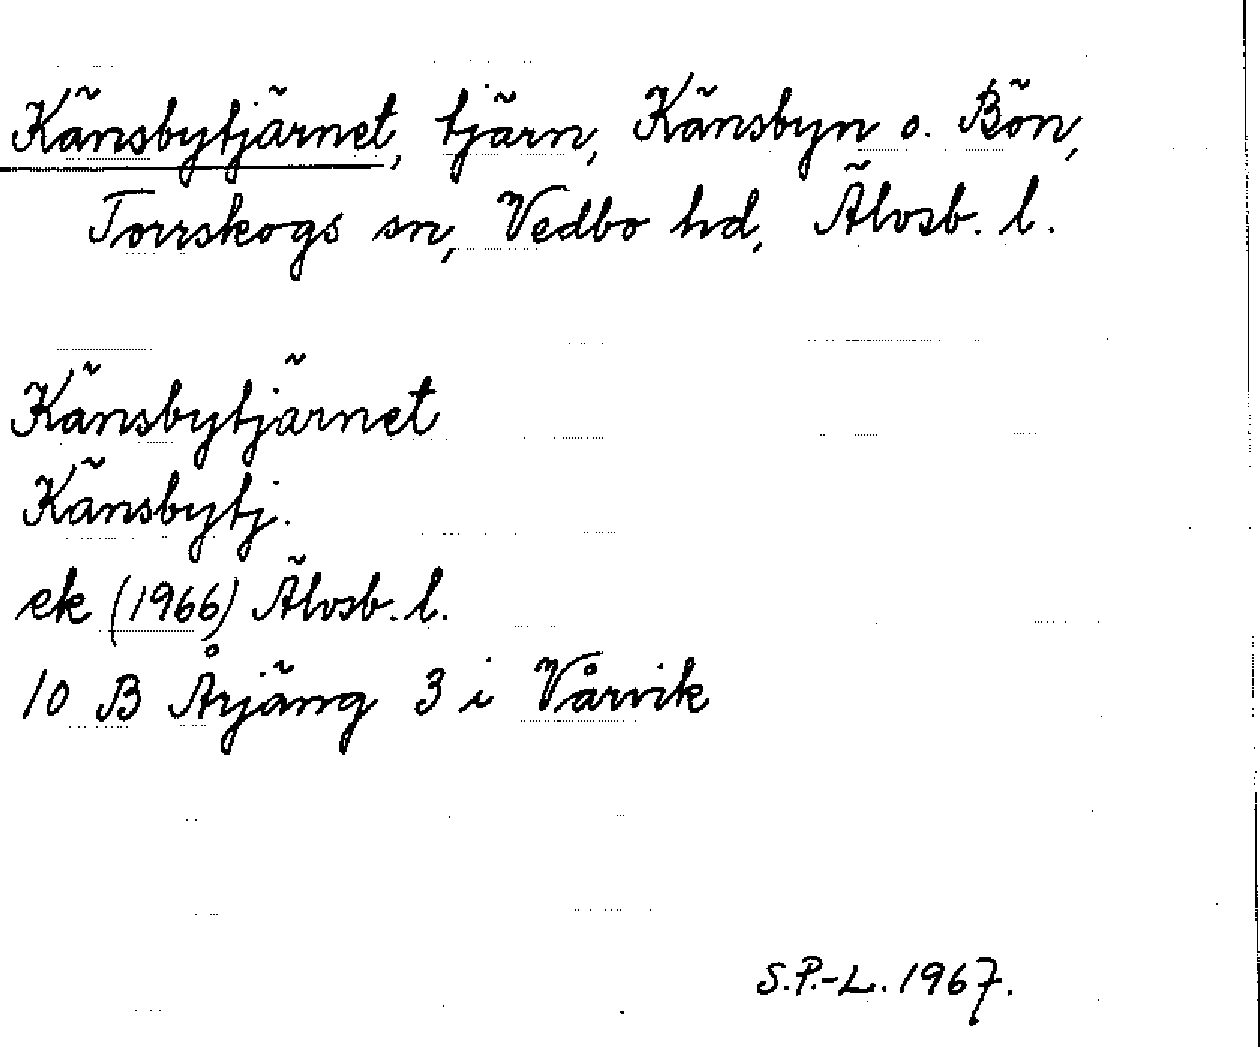 Känsbytjärnet, tjärn, Känsbyn o. Bön,
Torrskogs sn, Vedbo hd, Älvsb. l.
Känsbytjärnet
Känsbytj.
ek (1966) Älvsb. l.
10 B Årjäng 3 i Vårvik
S.P.-L. 1967.